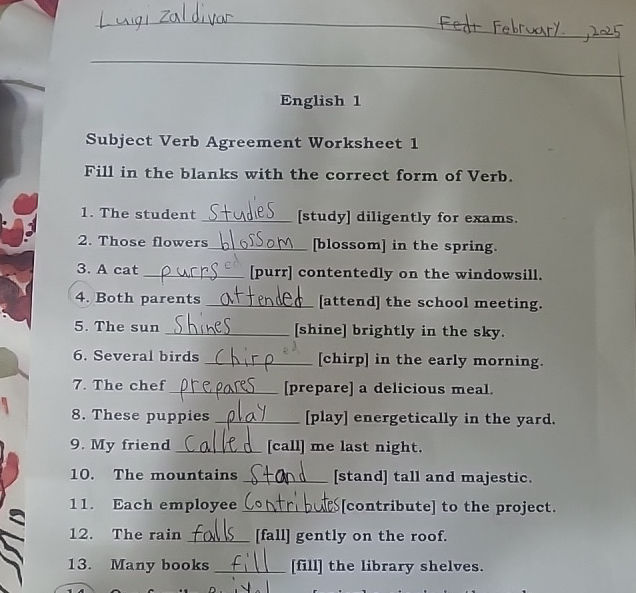 Luigi Zaldivar Fedt February. , 2025
English 1
Subject Verb Agreement Worksheet 1
Fill in the blanks with the correct form of Verb.
1. The student studies [study] diligently for exams.
2. Those flowers blossom [blossom] in the spring.
3. A cat purrs [purr] contentedly on the windowsill.
4. Both parents attended [attend] the school meeting.
5. The sun Shines [shine] brightly in the sky.
6. Several birds Chirp [chirp] in the early morning.
7. The chef prepares [prepare] a delicious meal.
8. These puppies play [play] energetically in the yard.
9. My friend Called [call] me last night.
10. The mountains Stand [stand] tall and majestic.
11. Each employee Contributes [contribute] to the project.
12. The rain falls [fall] gently on the roof.
13. Many books fill [fill] the library shelves.